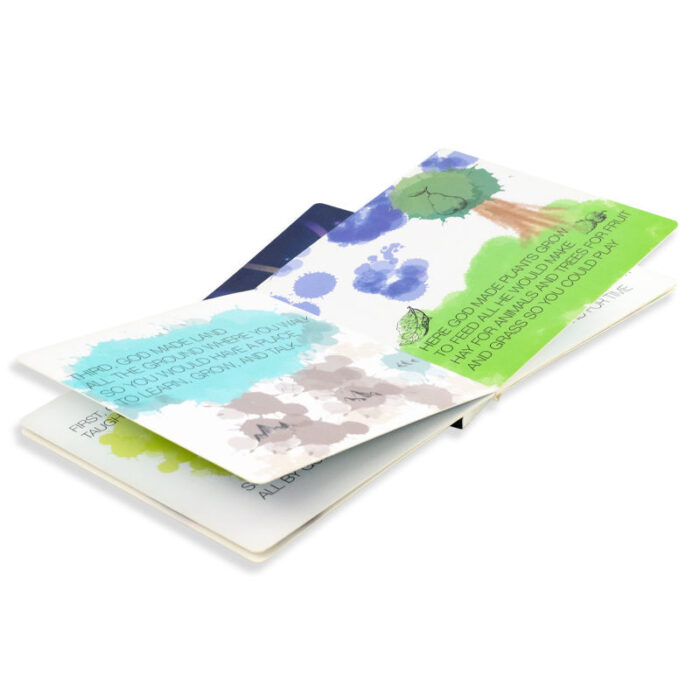 THIRD, GOD MADE LAND
ALL THE GROUND WHERE YOU WALK
SO YOU WOULD HAVE A PLACE
TO LEARN, GROW AND TALK
HERE GOD MADE PLANTS GROW
TO FEED ALL HE WOULD MAKE
HAY FOR ANIMALS AND TREES FOR FRUIT
AND GRASS SO YOU COULD PLAY
FIRST,
ALL BY
FOR TIME